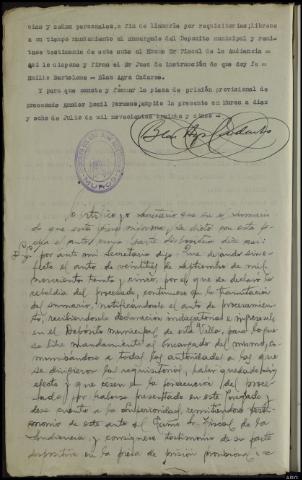 cias y señas personales, a fin de llamarle por requisitorias; líbrese
a su tiempo mandamiento al encargado del Deposito municipal y remi-
tase testimonio de este auto al Excmo Sr Fiscal de la Audiencia -
Asi lo dispone y firma el Sr Juez de instrucción de que doy fe -
Emilio Bartolome - Blas Agra Cadarso.
Y para que conste y formar la pieza de prisión provisional de
procesado expido la presente en Muros a diez
y ocho de Julio de mil novecientos treinta y
Blas Agra Cadarso
MUROS
Certifico yo Secretario que en el sumario
de que esta pieza dimana, se dictó con esta fe-
cha el auto cuya parte dispositiva dice así:
por ante mi Secretario dijo: Que dejando sin e-
fecto el auto de veintitres de septiembre de mil
novecientos treinta y cinco, por el que se declaró la
rebeldia del procesado, continuese en la tramitación
del sumario, notificándosele el auto de procesamiento,
recibiendosele declaración indagatoria e ingresando
en el Depósito municipal de esta Villa, para lo que
se libre mandamiento al Encargado del mismo, co-
municándose a todas las autoridades a las que
se dirigieron las requisitorias, haber quedado sin
efecto y que cesen en la persecución del proce-
sado, por haberse presentado en este Juzgado y
dese cuenta a la Superioridad, remitiendose testi-
monio de este auto al Excmo Sr. Fiscal de la
Audiencia, y consignese testimonio de su parte
dispositiva en la pieza de prisión provisional